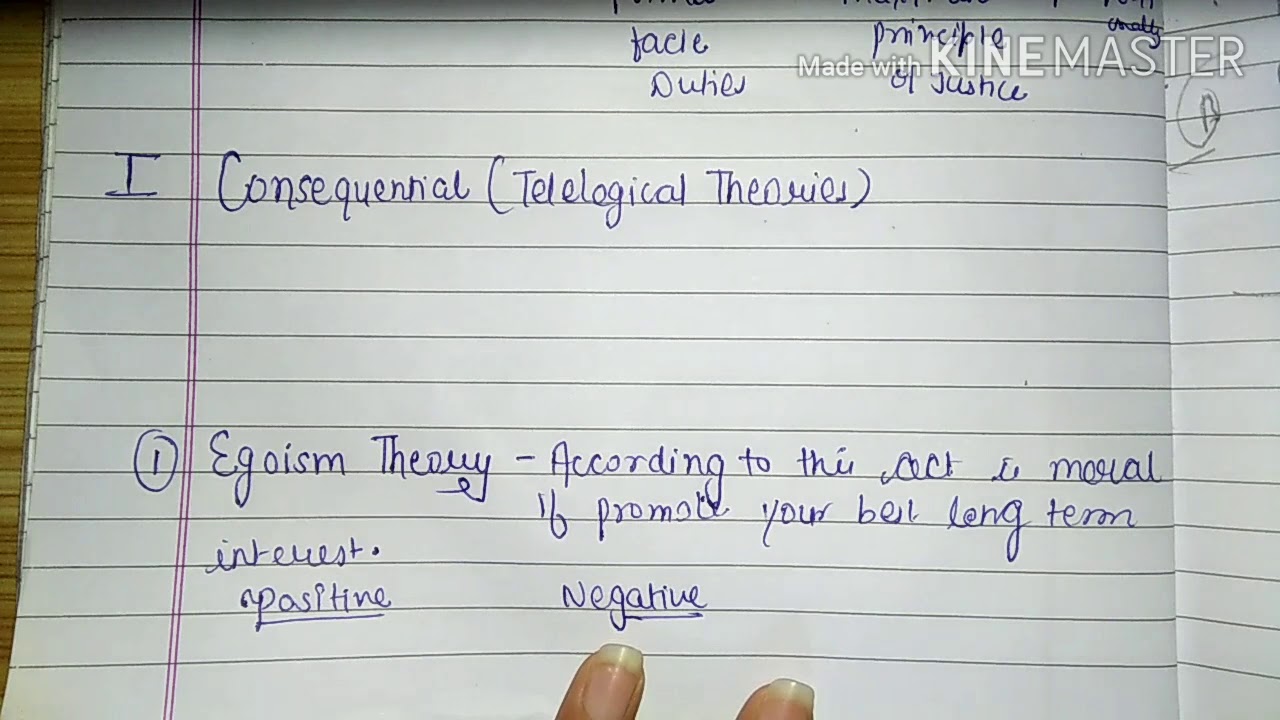 facie principle
Duties of Justice
Made with KINEMASTER
I Consequential (Telelogical Theories)
① Egoism Theory - According to this act is moral
If promote your best long term
interest.
Positive Negative